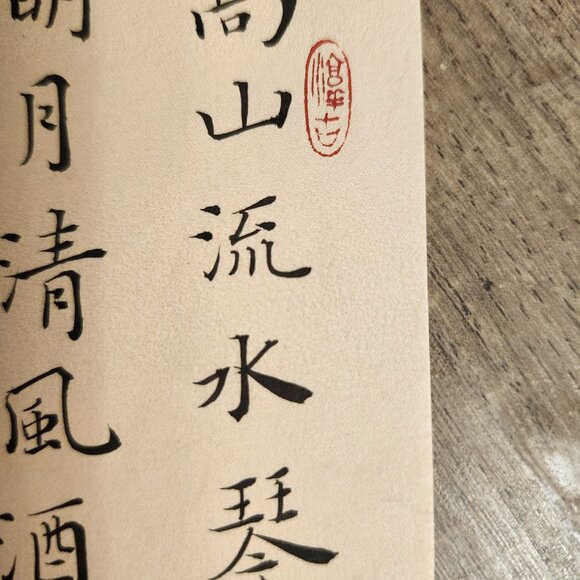 高山流水琴
明月清风酒